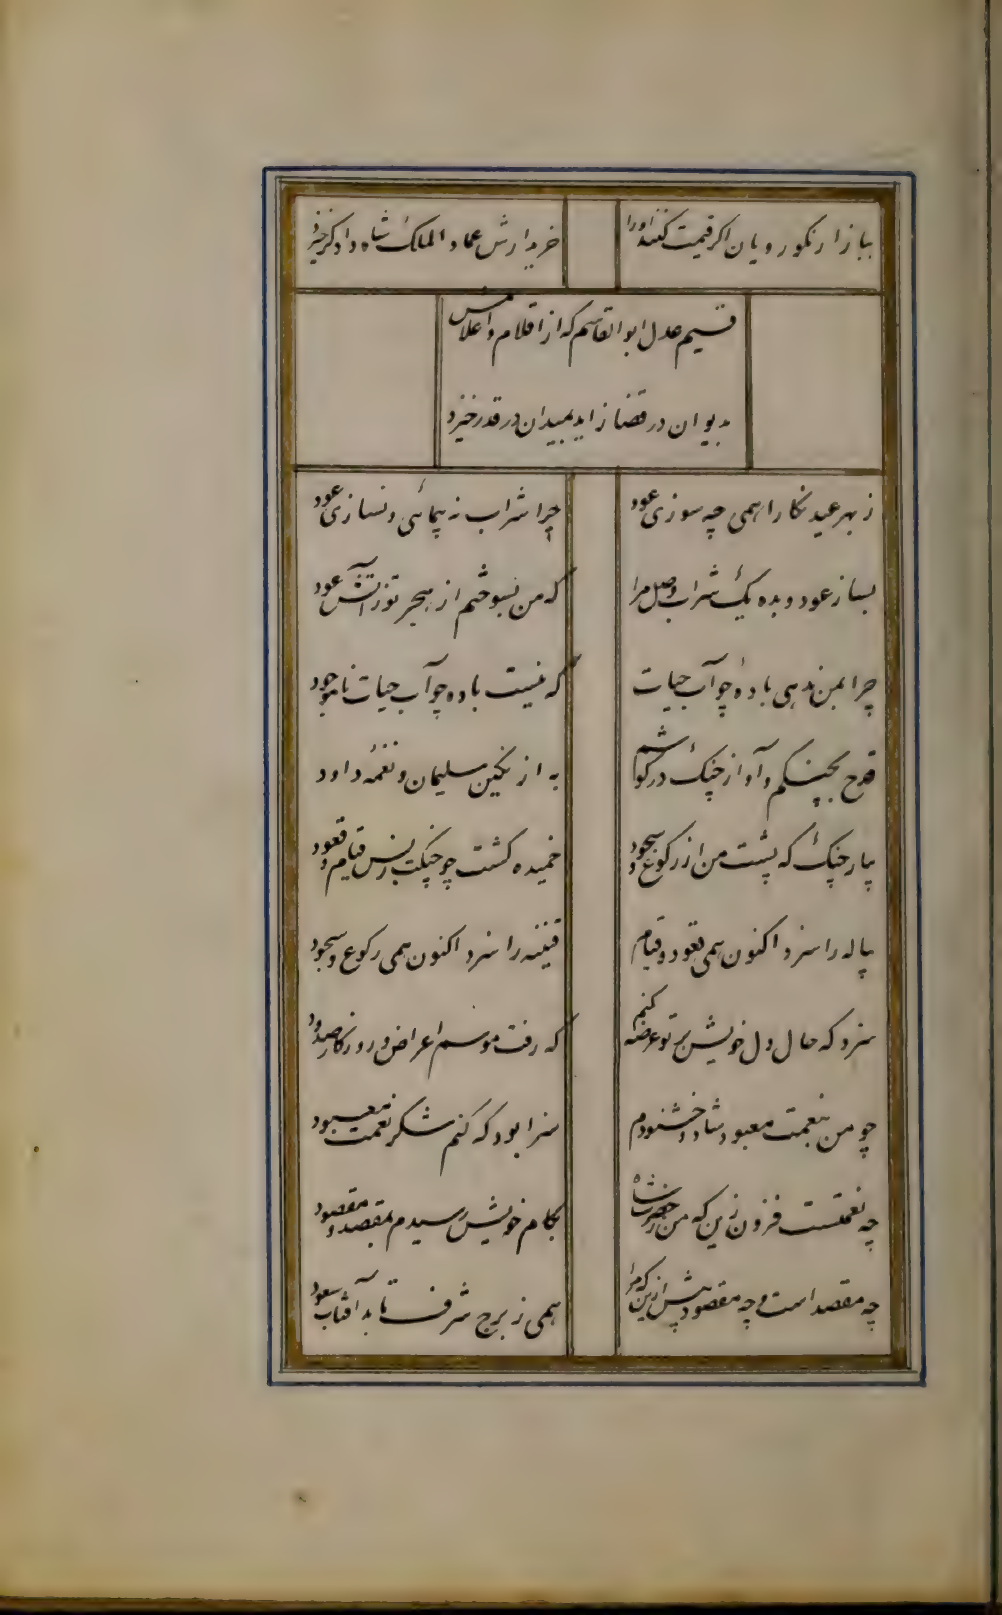 ببازار نکورویان اگر قیمت کنند او را خریدارش عماد الملک شاه دادگر خیزد
قسیم عدل ابوالقاسم که از اقلام و اعلامش
بدیوان در قضا زاید بمیدان در قدر خیزد
ز بهر عید نگارا همی چه سوزی عود چرا شراب نپیمائی و نسازی عود
بساز عود و بده یک شراب وصل مرا که من نسوختم از هجر تو در آتش عود
چرا بمن ندهی بادهٔ چو آب حیات که نیست باده چو آب حیات نا موجود
قدح بچنگم و آواز چنگ در گوشم به از نگین سلیمان و نغمه داود
بیار چنگ که پشت من از رکوع و سجود خمیده گشت چو چنگت ز بس قیام و قعود
پیاله را سزد اکنون همی قعود و قیام قنینه را سزد اکنون همی رکوع و سجود
سزد که حال دل خویش بر تو عرضه کنم که رفت موسم اعراض و روزگار صدود
چو من بنعمت معبود شاد و خشنودم سزا بود که کنم شکر نعمت معبود
چه نعمتست فزون زین که من ز حضرت شاه بکام خویش رسیدم بمقصد و مقصود
چه مقصد است و چه مقصود بیش ازین که مرا همی ز برج شرف تابد آفتاب سعود